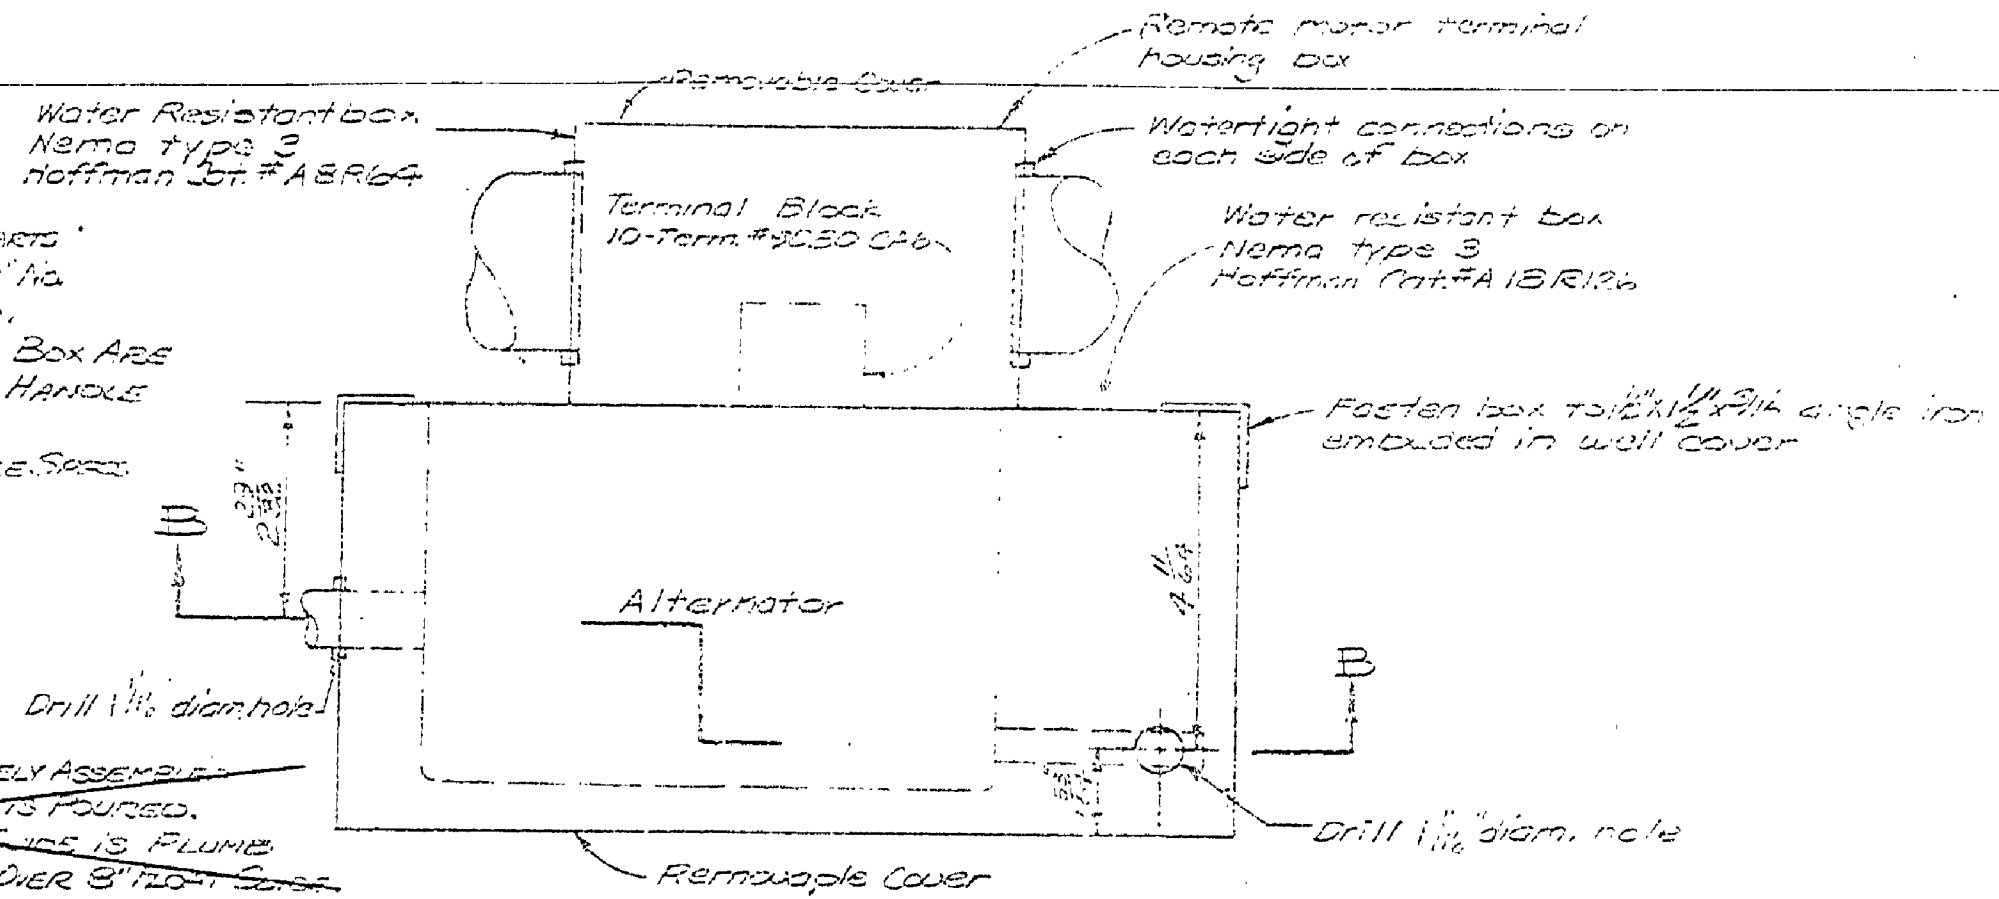 Remote motor terminal
housing box
Removable Cover
Water Resistant box
Nema type 3
Hoffman Cat. # A8R64
Watertight connections on
each side of box
Terminal Block
10-Term.
Water resistant box
Nema type 3
Hoffman Cat. # A18R126
No.
BOX ARE
HANDLE
Fasten box to angle iron
embedded in well cover
B
4 11/64
Alternator
B
Drill 1 11/16" diam hole
ASSEMBLED
IS POURED.
IS PLUMB
OVER 8"
Drill 1 11/16" diam. hole
Removable Cover